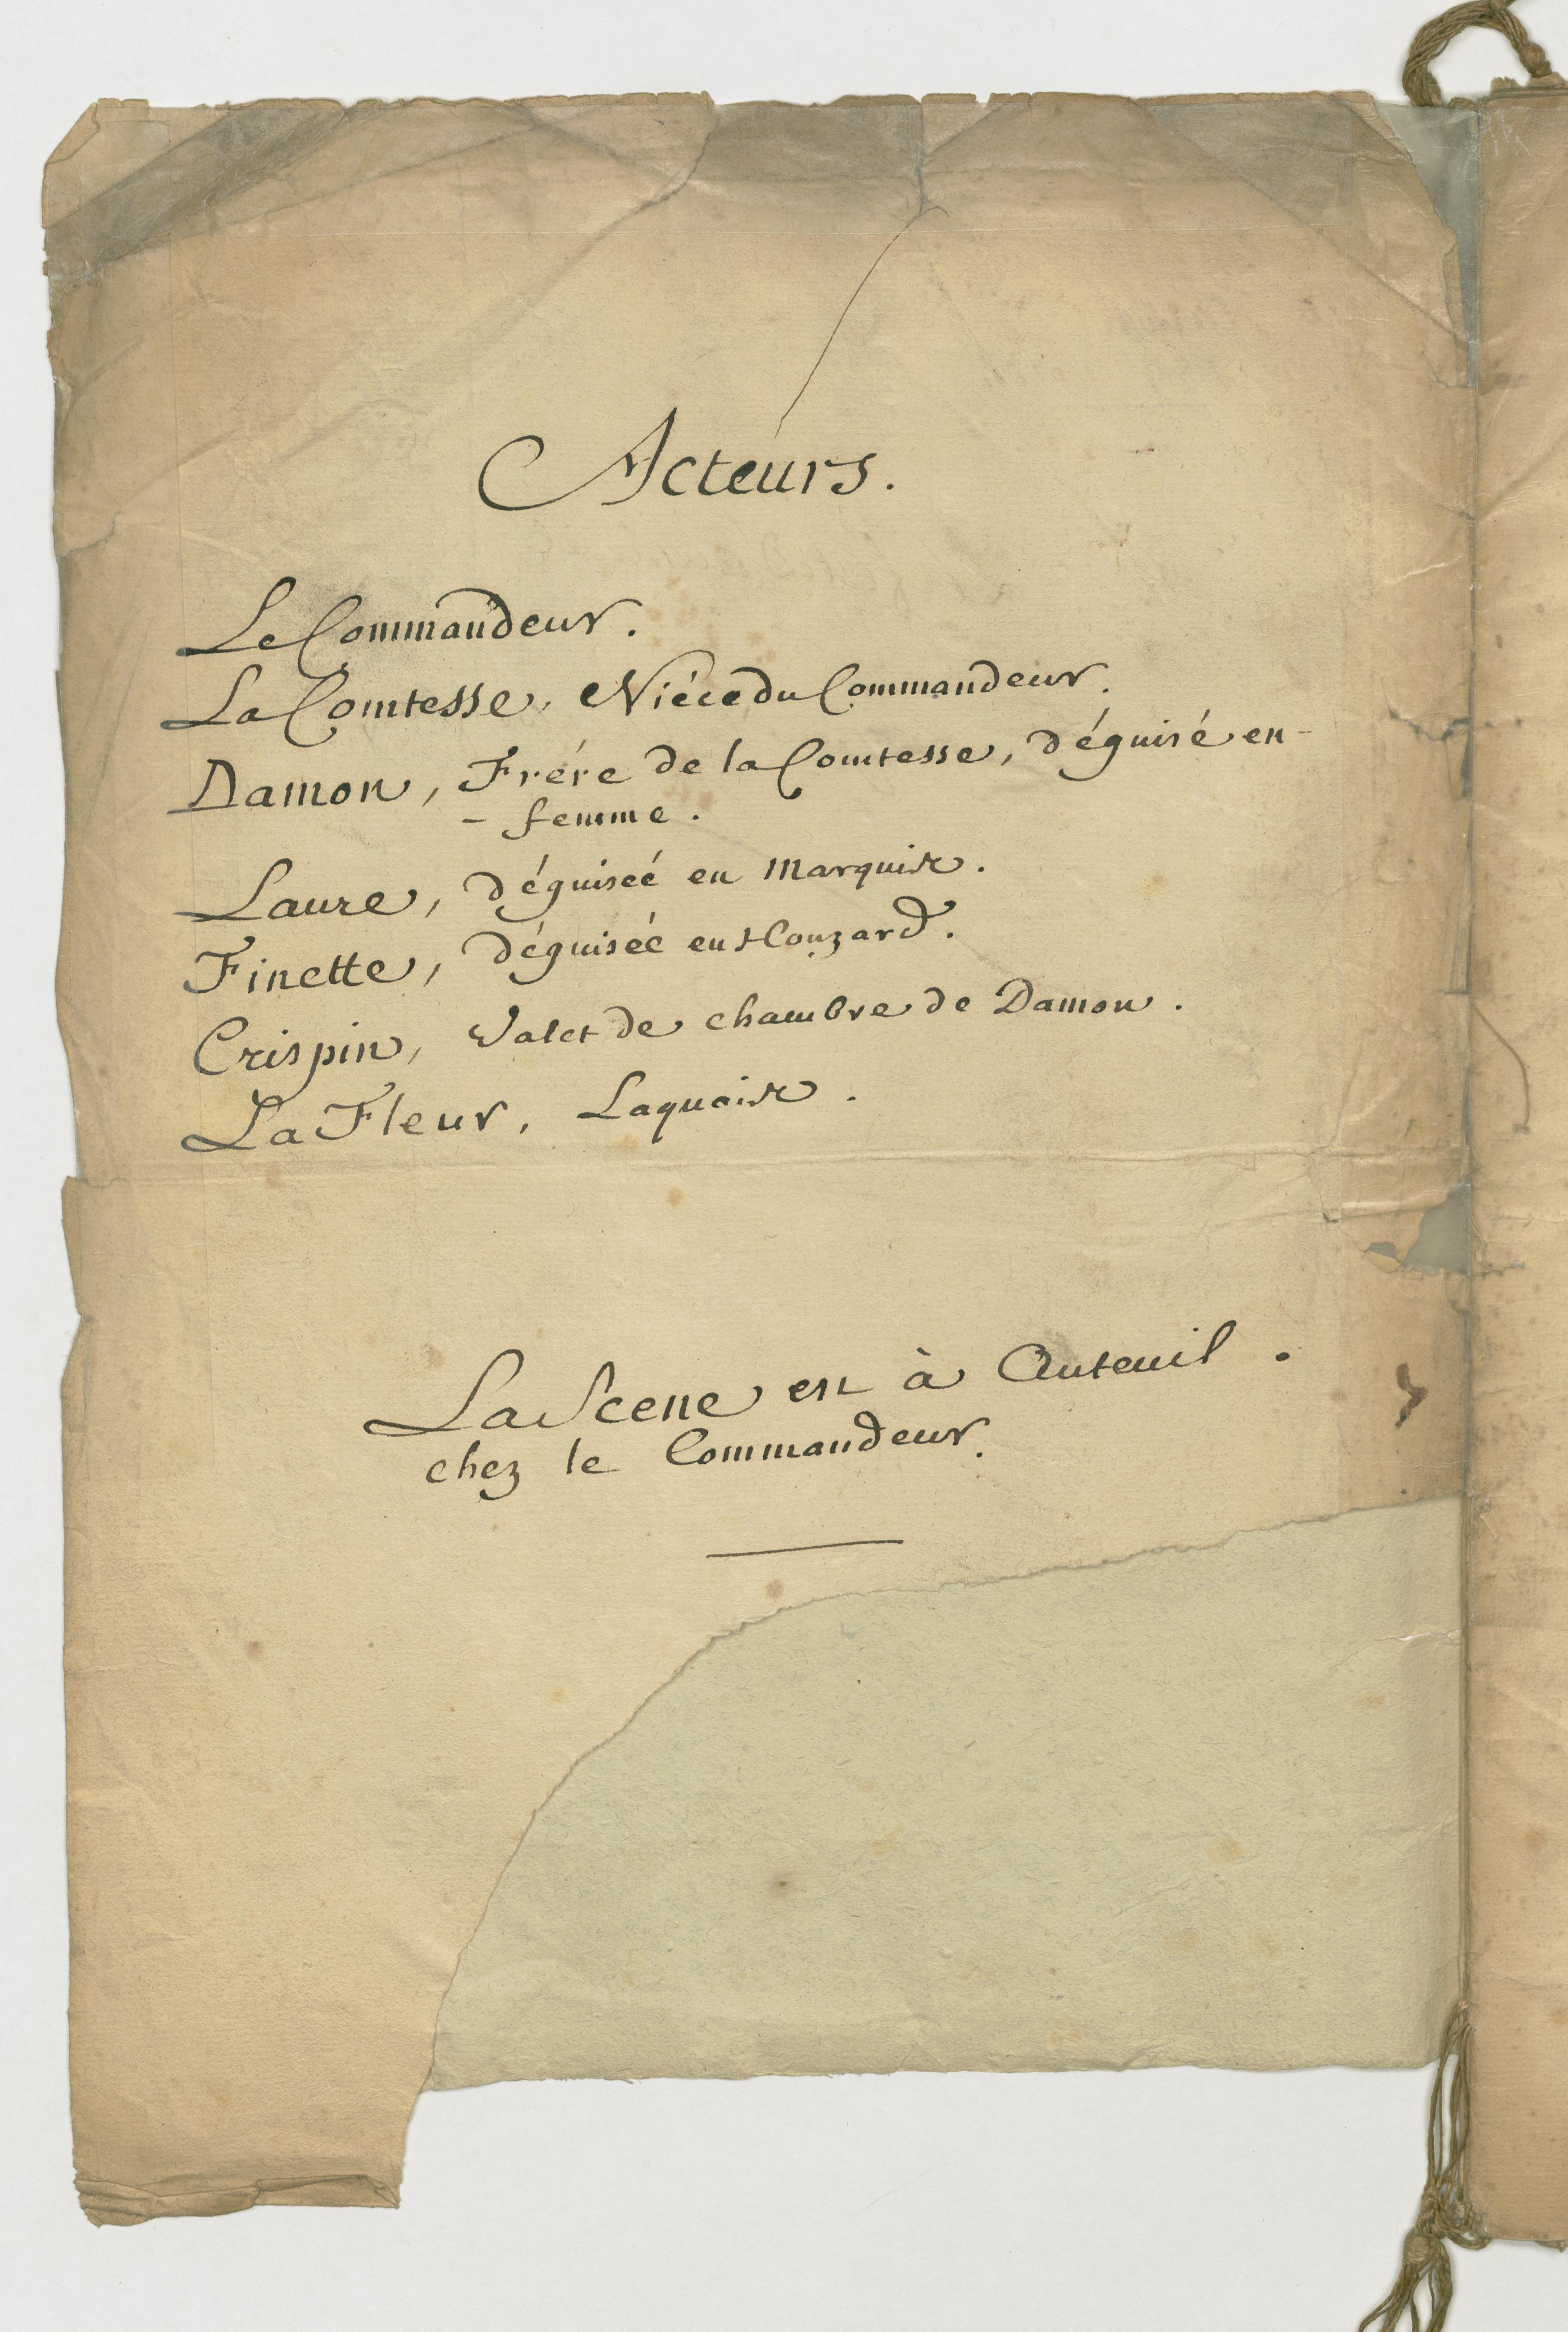 Acteurs.
Le Commandeur.
La Comtesse, Niéce du Commandeur.
Damon, Frére de la Comtesse, déguisé en-
- femme.
Laure, déguiseé en Marquis.
Finette, déguiseé en Houzard.
Crispin, Valet de chambre de Damon.
La Fleur, Laquais.
La Scene est à Auteuil.
chez le Commandeur.